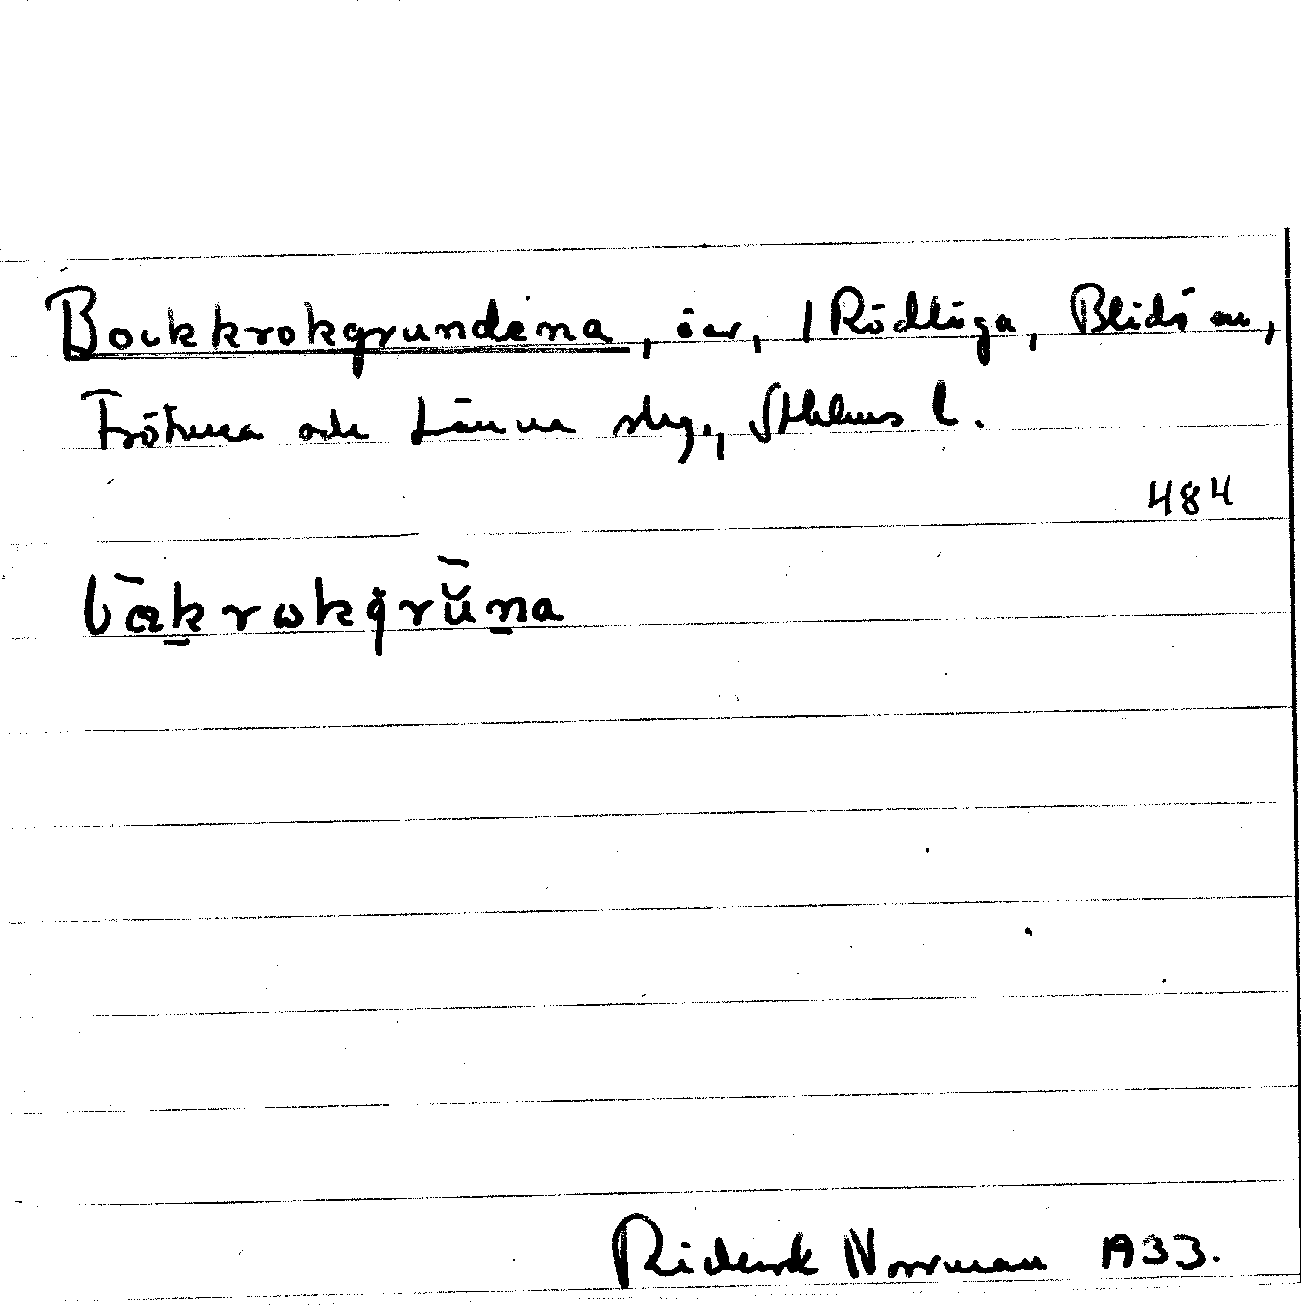 Bockkrokgrundena, öar, i Rödlöga, Blidö sn,
Frötuna och Länna skg., Sthlms l.
484
bàkrωkgrŭna
Rickard Norrman 1933.